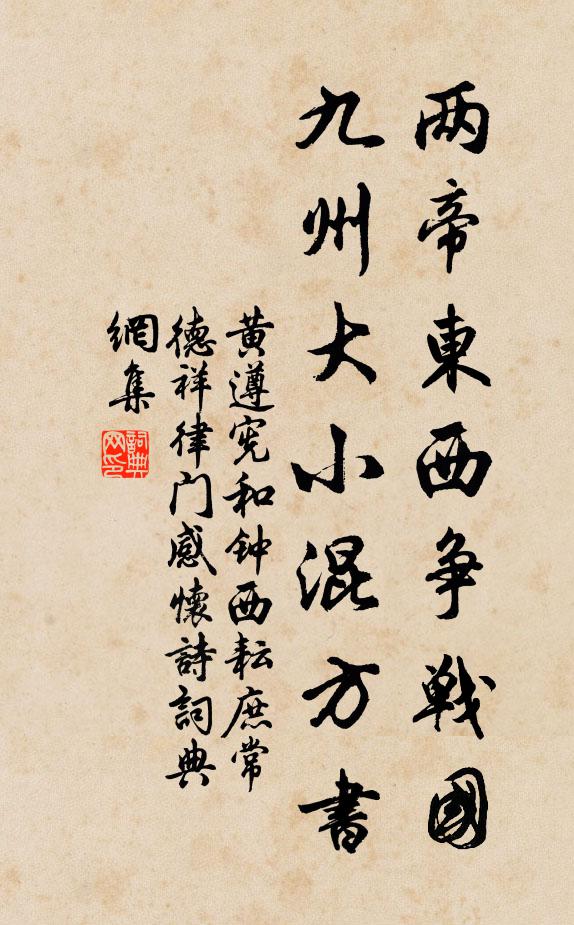 两帝東西争戰國
九州大小混方書
黄遵宪和钟西耘庶常
德祥律门感懷詩詞典
網集
詞典
网印